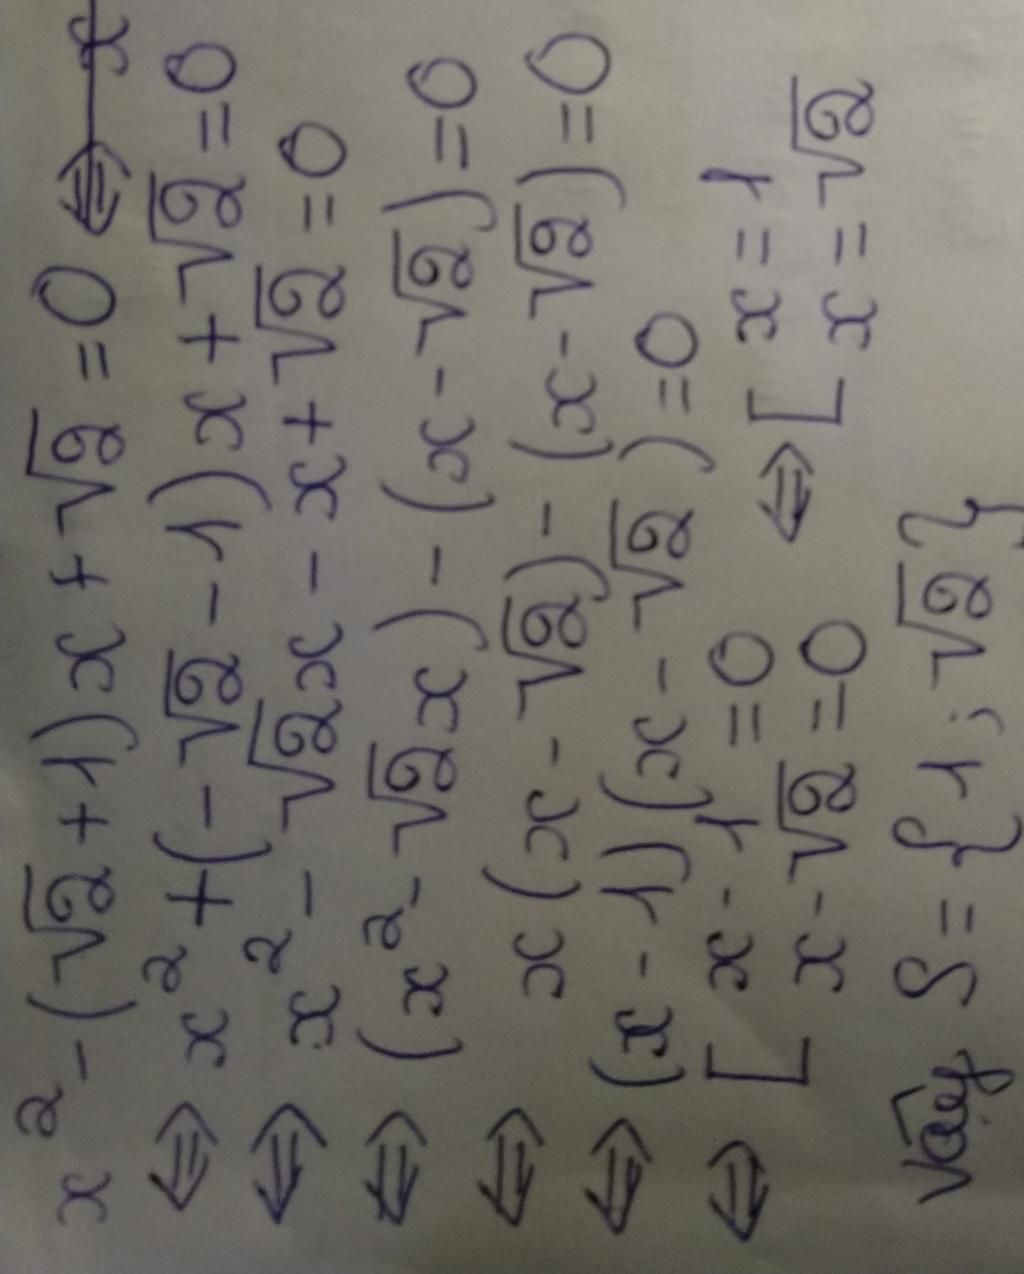 x² - (√2 + 1)x + √2 = 0 ⇔ x
⇔ x² + (-√2 - 1)x + √2 = 0
⇔ x² - √2x - x + √2 = 0
⇔ (x² - √2x) - (x - √2) = 0
⇔ x(x - √2) - (x - √2) = 0
⇔ (x - 1)(x - √2) = 0
⇔ [ x - 1 = 0 ⇔ [ x = 1
x - √2 = 0 x = √2
Vậy S = {1; √2}